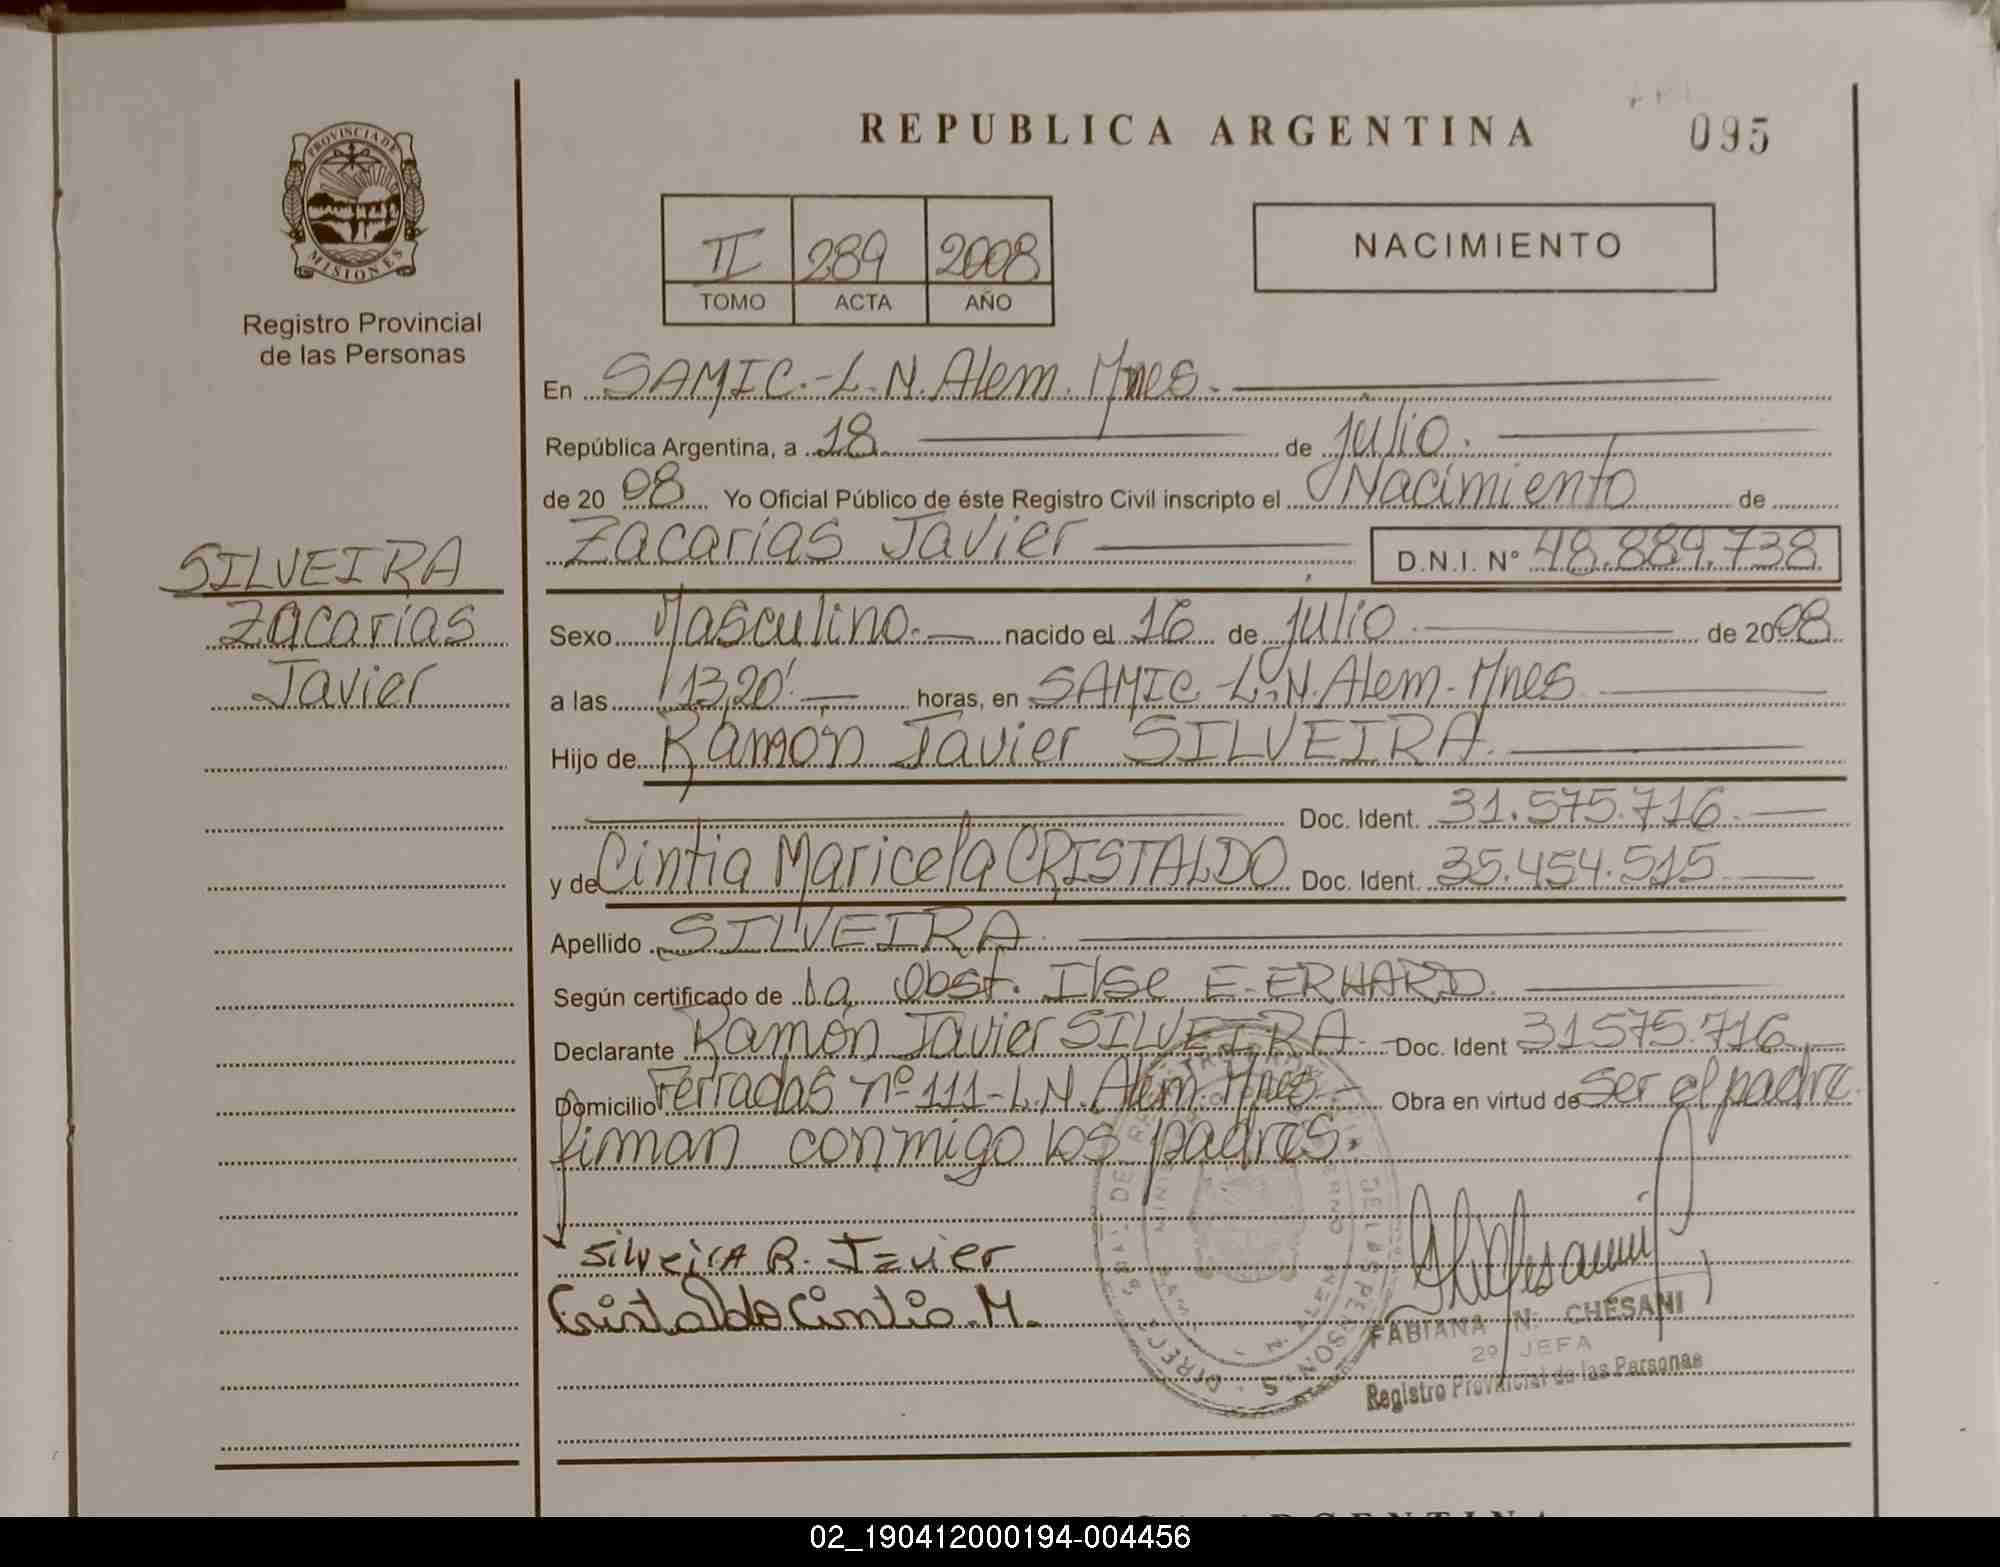 REPUBLICA ARGENTINA
095
PROVINCIA DE
MISIONES
Registro Provincial
de las Personas
II 289 2008
TOMO ACTA AÑO
NACIMIENTO
En SAMIC.-L.N.Alem.Mnes.-
República Argentina, a 18 de julio.
de 20 08 Yo Oficial Público de éste Registro Civil inscripto el Nacimiento de
Zacarías Javier D.N.I. Nº 48.889.738
SILVEIRA
Zacarías
Javier
Sexo Masculino.- nacido el 16 de julio de 2008
a las 13,20'.- horas, en SAMIC-L.N.Alem-Mnes
Hijo de Ramón Javier SILVEIRA.
Doc. Ident. 31.575.716.-
y de Cintia Maricela CRISTALDO Doc. Ident. 35.454.515
Apellido SILVEIRA
Según certificado de la Obst. Ilse E. ERHARD.
Declarante Ramón Javier SILVEIRA.- Doc. Ident 31575.716
Domicilio Terradas nº 111-L.N.Alem.Mnes- Obra en virtud de ser el padre.
firman conmigo los padres.
SilveirA R. Javier
Cristaldo Cintia M.
FABIANA N. CHESANI
2º JEFA
Registro Provincial de las Personas
02_190412000194-004456